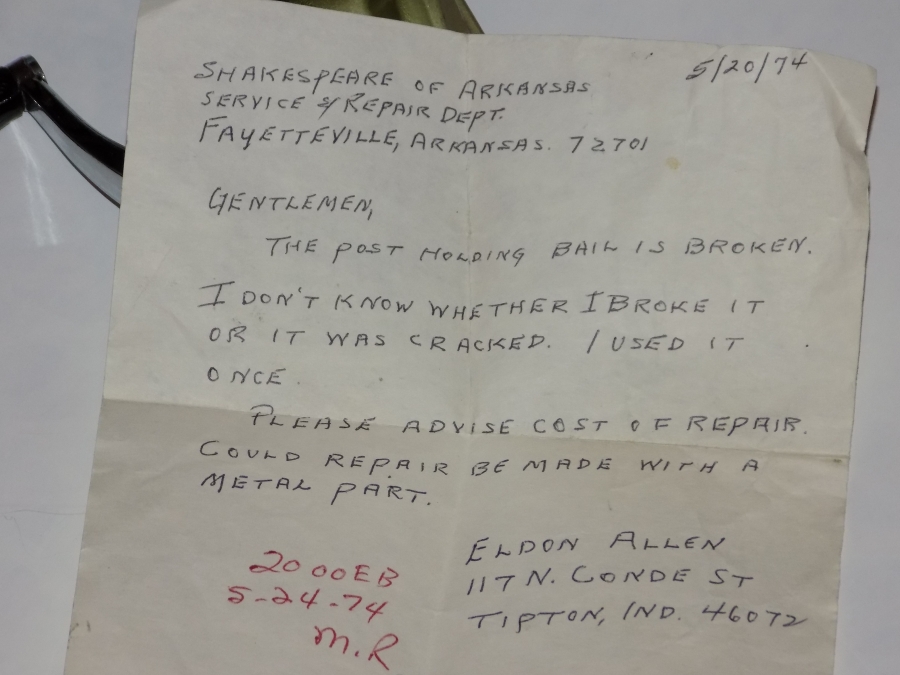 5/20/74
SHAKESPEARE OF ARKANSAS
SERVICE & REPAIR DEPT.
FAYETTEVILLE, ARKANSAS. 72701
GENTLEMEN,
THE POST HOLDING BAIL IS BROKEN.
I DON'T KNOW WHETHER I BROKE IT
OR IT WAS CRACKED. I USED IT
ONCE.
PLEASE ADVISE COST OF REPAIR.
COULD REPAIR BE MADE WITH A
METAL PART.
ELDON ALLEN
117 N. CONDE ST
TIPTON, IND. 46072
2000EB
5-24-74
M.R